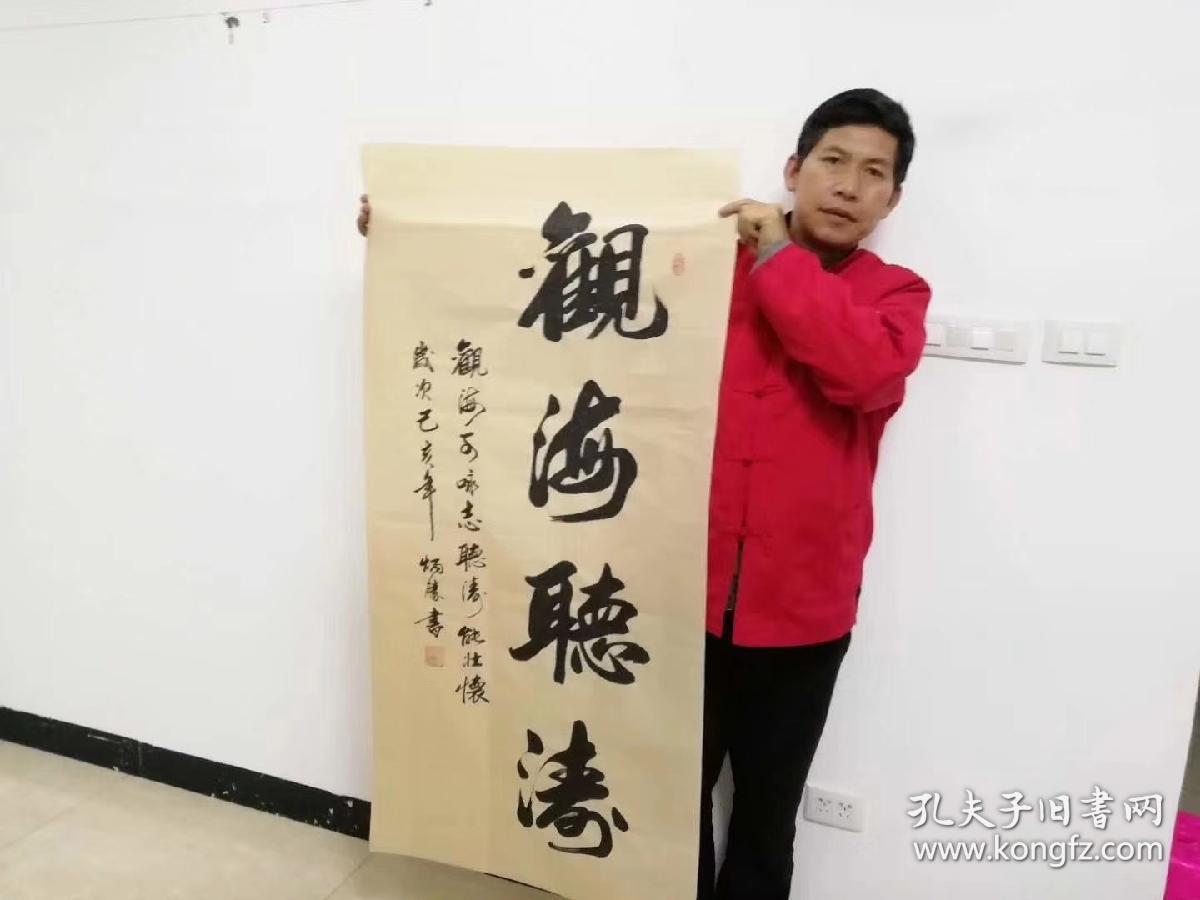 觀海聽濤
觀海可咏志聽濤能壯懷
歲次己亥年 炳勝書
孔夫子旧書网
www.kongfz.com